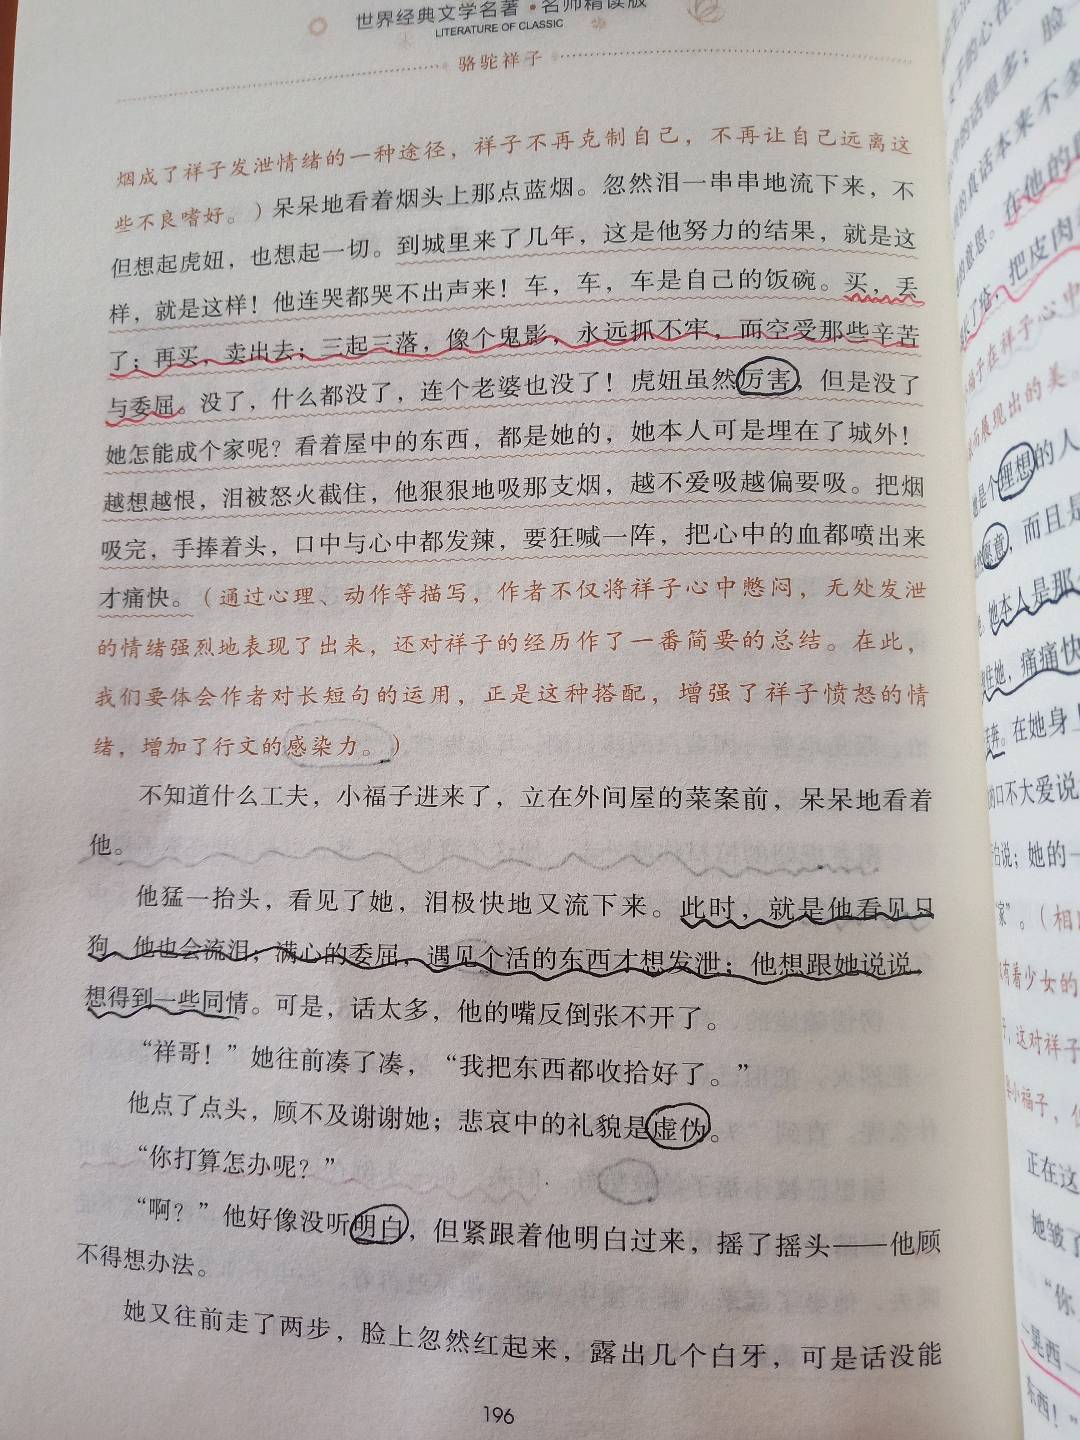 世界经典文学名著·名师精读版
LITERATURE OF CLASSIC
骆驼祥子
烟成了祥子发泄情绪的一种途径，祥子不再克制自己，不再让自己远离这
些不良嗜好。）呆呆地看着烟头上那点蓝烟。忽然泪一串串地流下来，不
但想起虎妞，也想起一切。到城里来了几年，这是他努力的结果，就是这
样，就是这样！他连哭都哭不出声来！车，车，车是自己的饭碗。买，丢
了；再买，卖出去；三起三落，像个鬼影，永远抓不牢，而空受那些辛苦
与委屈。没了，什么都没了，连个老婆也没了！虎妞虽然厉害，但是没了
她怎能成个家呢？看着屋中的东西，都是她的，她本人可是埋在了城外！
越想越恨，泪被怒火截住，他狠狠地吸那支烟，越不爱吸越偏要吸。把烟
吸完，手捧着头，口中与心中都发辣，要狂喊一阵，把心中的血都喷出来
才痛快。（通过心理、动作等描写，作者不仅将祥子心中憋闷，无处发泄
的情绪强烈地表现了出来，还对祥子的经历作了一番简要的总结。在此，
我们要体会作者对长短句的运用，正是这种搭配，增强了祥子愤怒的情
绪，增加了行文的感染力。）
不知道什么工夫，小福子进来了，立在外间屋的菜案前，呆呆地看着
他。
他猛一抬头，看见了她，泪极快地又流下来。此时，就是他看见只
狗，他也会流泪；满心的委屈，遇见个活的东西才想发泄；他想跟她说说，
想得到一些同情。可是，话太多，他的嘴反倒张不开了。
“祥哥！”她往前凑了凑，“我把东西都收拾好了。”
他点了点头，顾不及谢谢她；悲哀中的礼貌是虚伪。
“你打算怎办呢？”
“啊？”他好像没听明白，但紧跟着他明白过来，摇了摇头——他顾
不得想办法。
她又往前走了两步，脸上忽然红起来，露出几个白牙，可是话没能
196
的话很多；
的真话本来不多
的意思。在他的
了疮，把皮肉
子在祥子心中
展现出的美。
她是个理想的人
愿意，而且是
她本人是那
住她，痛痛快
在她身上
的口不大爱说
白说；她的一
家”。（相
有着少女的
，这对祥子
小福子，
正在这
她皱了
“你
一晃西一
东西！”